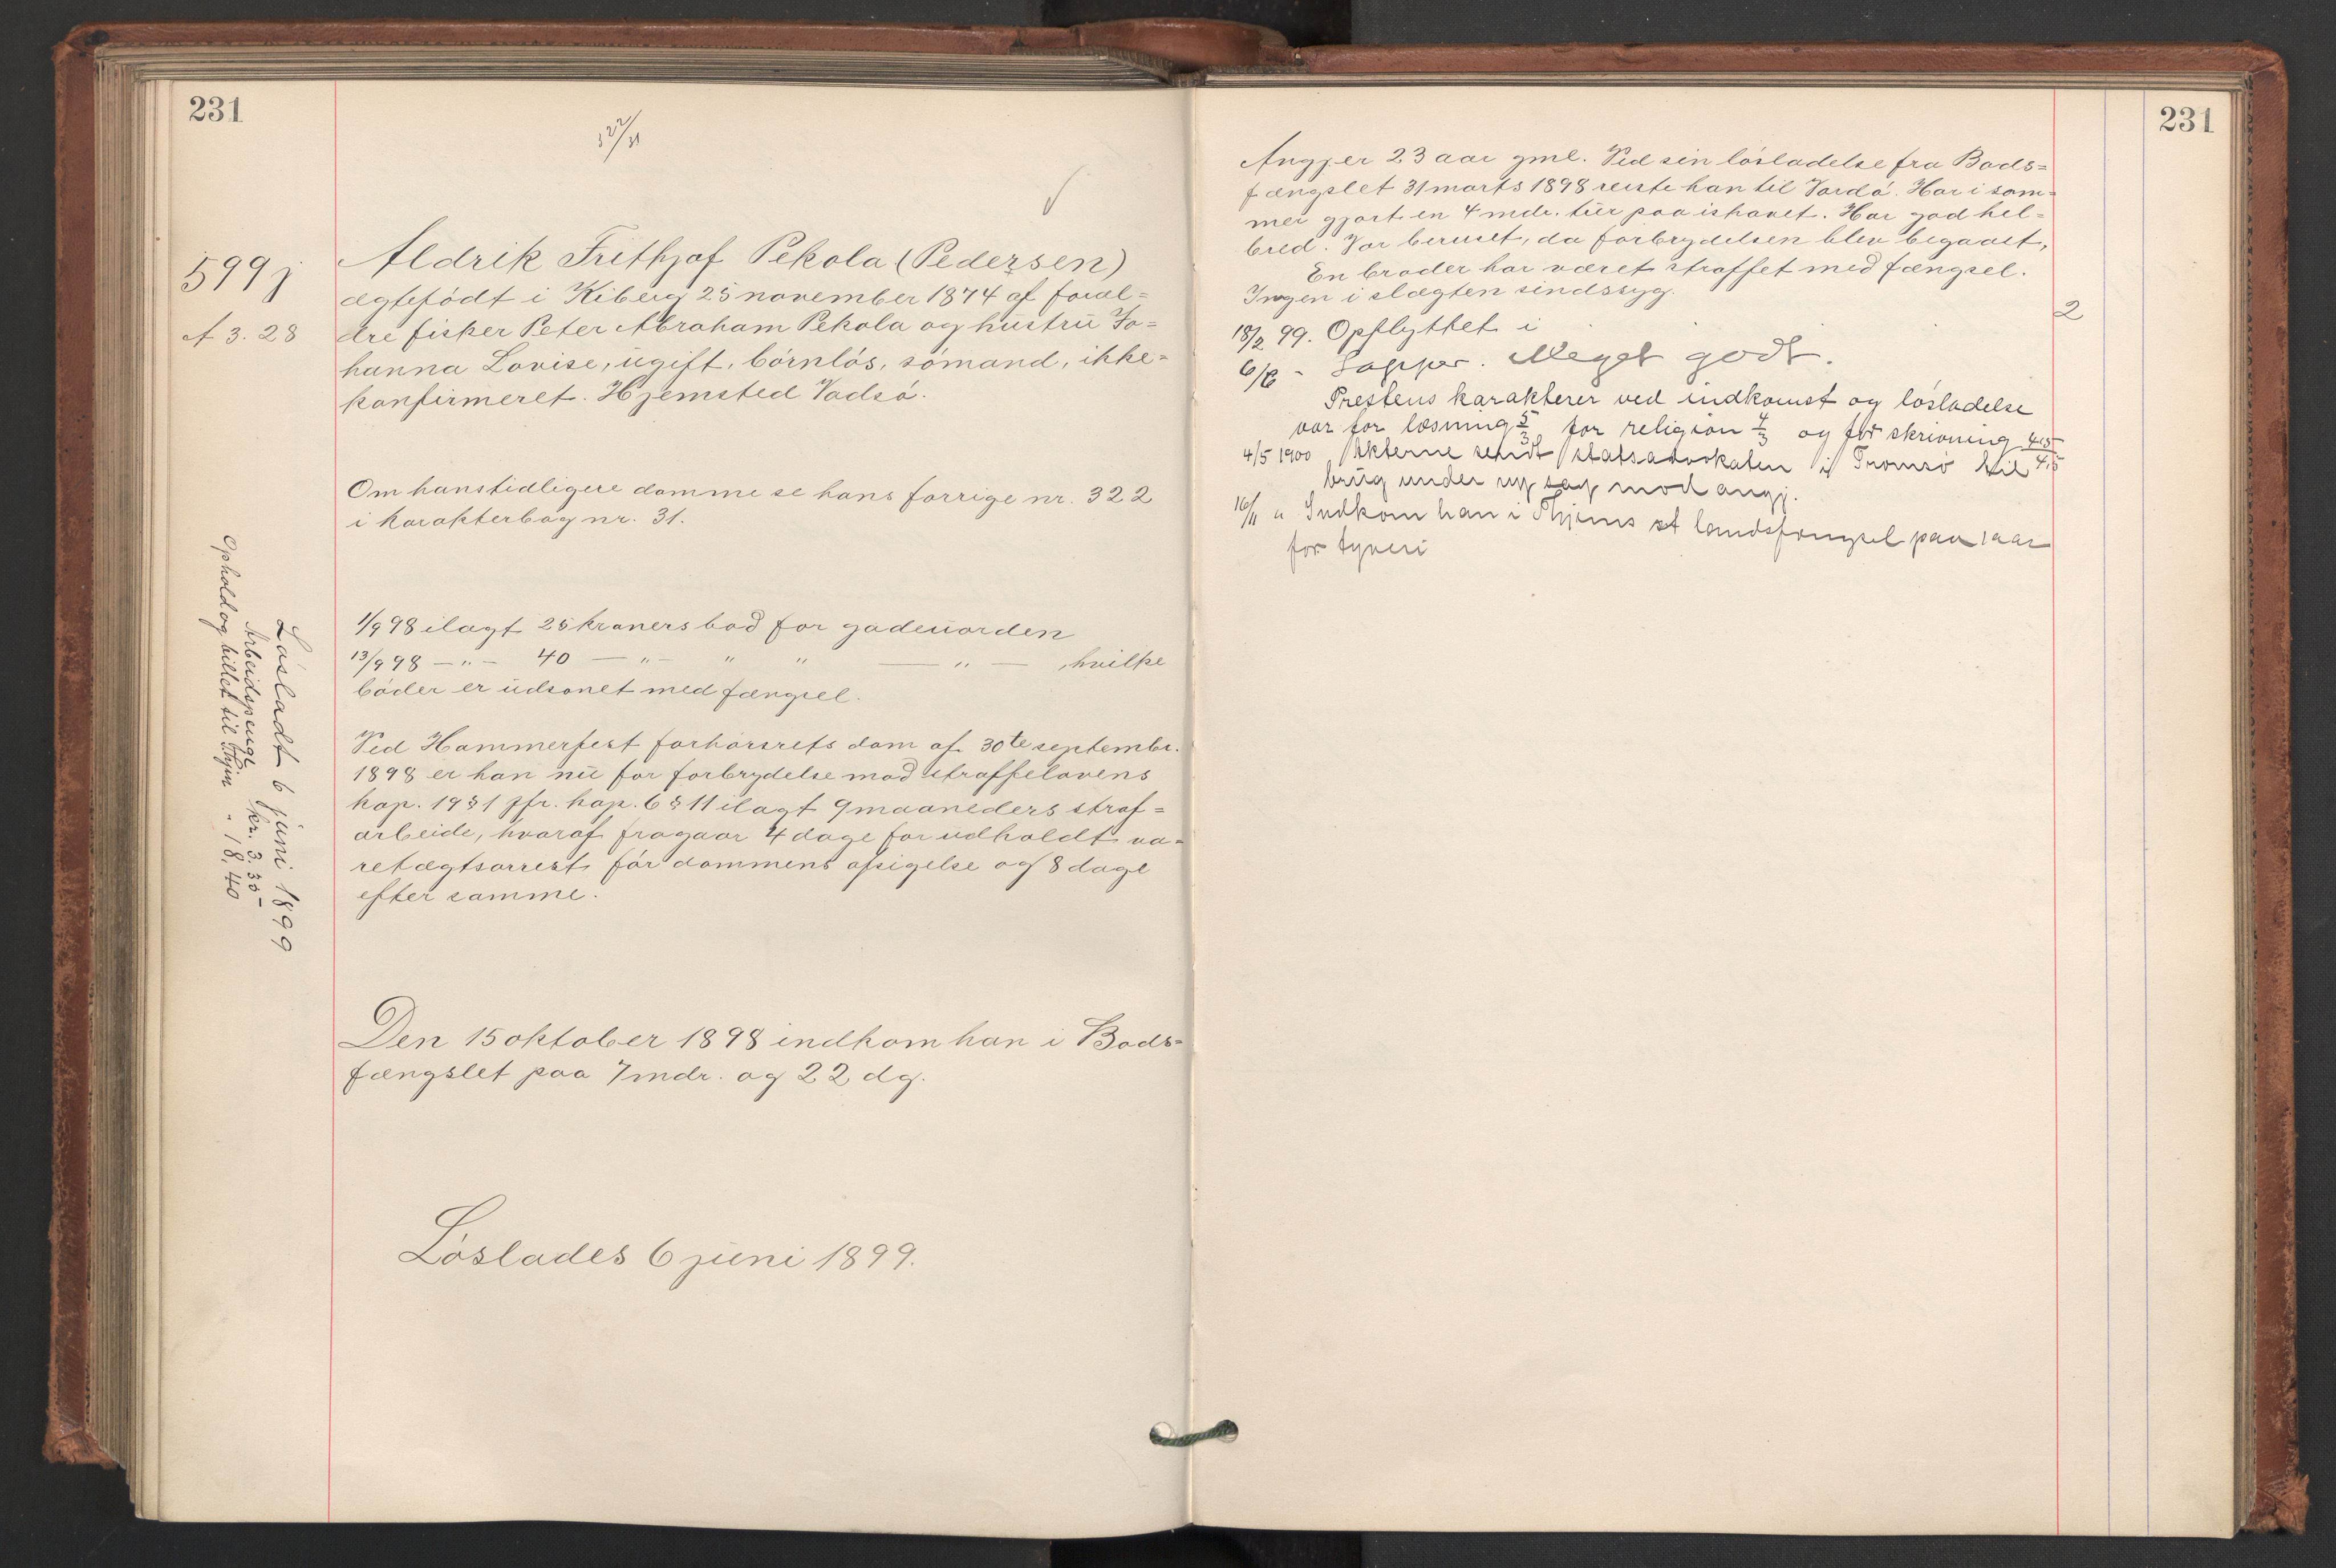 231
322/31
599 j
A 3. 28
Aldrik Frithjof Pekola (Pedersen)
ægtefödt i Kiberg 25 november 1874 af foræl=
dre fisker Peter Abraham Pekola og hustru Jo=
hanna Lovise, ugift, börnlös, sömand, ikke=
konfirmeret. Hjemsted Vadsö.
Om hans tidligere domme se hans forrige nr. 322
i karakterbog nr. 31.
1/9 98 ilagt 25 kroners bod for gadeuorden
13/9 98 — " — 40 — " — " " — " — , hvilke
böder er udsonet med fængsel.
Ved Hammerfest forhörsrets dom af 30te septembr.
1898 er han nu for forbrydelse mod straffelovens
kap. 19 § 1 jfr. kap. 6 § 11 ilagt 9 maaneders straf=
arbeide, hvoraf fragaar 4 dage for udholdt va=
retægtsarrest för dommens afsigelse og 8 dage
efter samme.
Den 15 oktober 1898 indkom han i Bods=
fængslet paa 7 mdr. og 22 dg.
Löslades 6 juni 1899.
Lösladt 6 juni 1899
Arbeidspenge kr. 3.35
Ophold og billet til Thjem " 18,40
231
Angjer 23 aar gml. Ved sin lösladelse fra Bods=
fængslet 31 marts 1898 reiste han til Vardö. Har i som=
mer gjort en 4 mdr. tur paa ishavet. Har god hel=
bred. Var beruset, da forbrydelsen blev begaaet,
En broder har været straffet med fængsel.
Ingen i slægten sindssyg.
2
18/2 99. Opflyttet i
6/6 - Sagper. Meget godt.
Prestens karakterer ved indkomst og lösladelse
var for læsning 5/3 for religion 4/3 og for skrivning 4,5/4,5
4/5 1900 Akterne sendt statsadvokaten i Tromsö til
brug under ny sag mod angj.
16/11 " Indkom han i Thjems st landsfængsel paa 1 aar
for tyveri